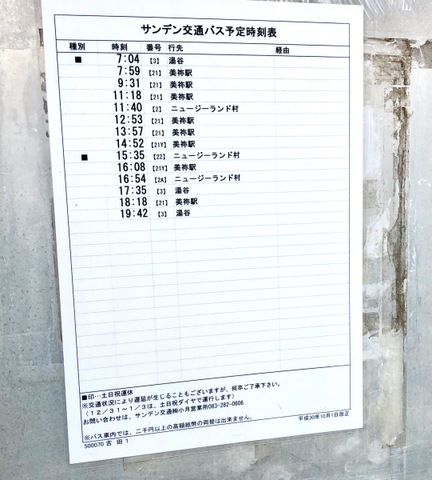 サンデン交通バス予定時刻表
種別 時刻 番号 行先 経由
■ 7:04 [3] 湯谷
7:59 [21] 美祢駅
9:31 [21] 美祢駅
11:18 [21] 美祢駅
11:40 [2] ニュージーランド村
12:53 [21] 美祢駅
13:57 [21] 美祢駅
14:52 [21Y] 美祢駅
■ 15:35 [22] ニュージーランド村
16:08 [21Y] 美祢駅
16:54 [2A] ニュージーランド村
17:35 [3] 湯谷
18:18 [21] 美祢駅
19:42 [3] 湯谷
■印…土日祝運休
※交通状況により遅延が生じることもございますが、何卒ご了承下さい。
(12/31~1/3は、土日祝ダイヤで運行します)
お問い合わせは、サンデン交通㈱小月営業所083-282-0606
平成30年10月1日改正
※バス車内では、二千円以上の高額紙幣の両替は出来ません。
500070 吉田 1